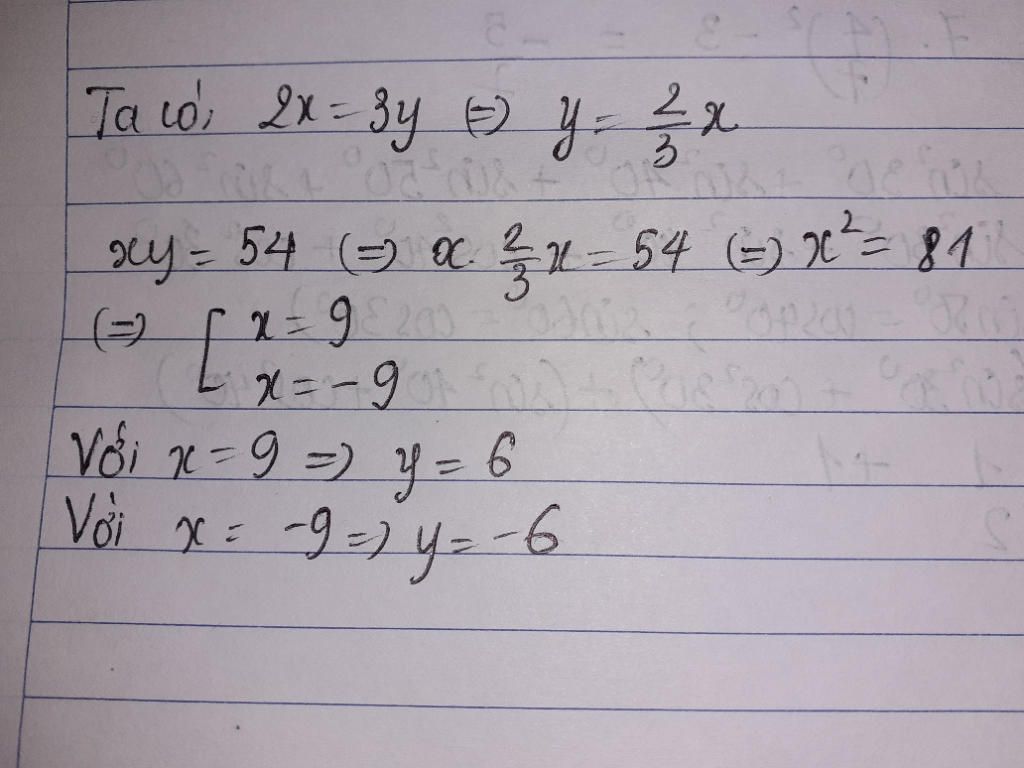 Ta có, 2x = 3y (=) y = 2/3 x
xy = 54 (=) x. 2/3 x = 54 (=) x² = 81
(=) [ x = 9
x = -9
Với x = 9 => y = 6
Với x = -9 => y = -6